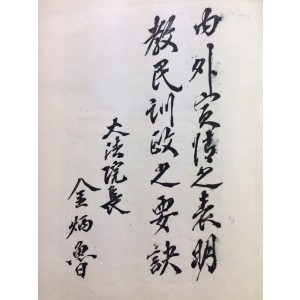 內外實情之表明
教民訓政之要訣
大法院長
金炳魯